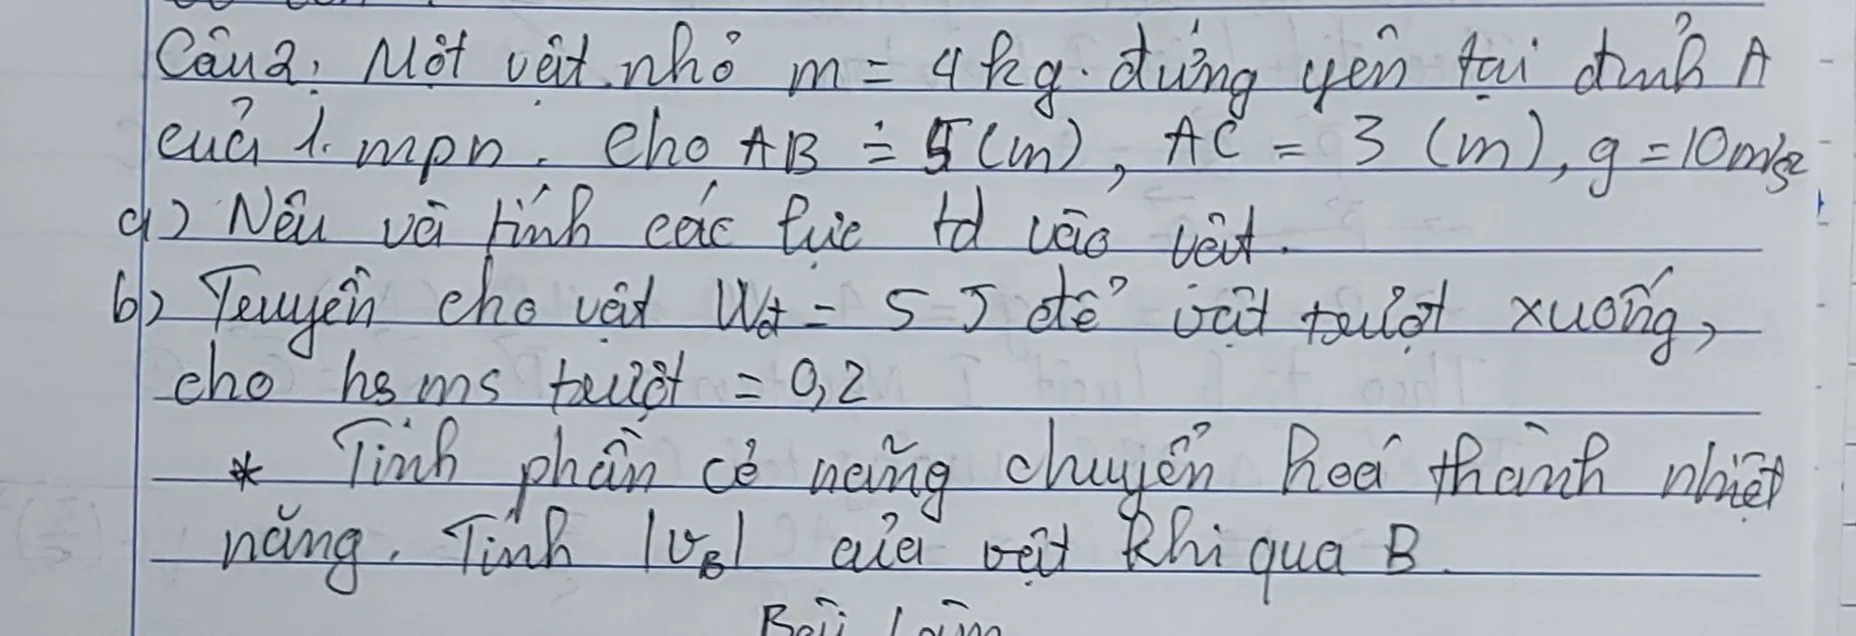 Câu 2: Một vật nhỏ m = 4 kg. đứng yên tại đỉnh A
của 1 mpn. Cho AB = 5 (m), AC = 3 (m), g = 10m/s2
a) Nêu và tính các lực td vào vật.
b) Truyền cho vật Wđ = 5 J để vật trượt xuống,
cho hs ms trượt = 0,2
* Tính phần cơ năng chuyển hoá thành nhiệt
năng. Tính |vB| của vật khi qua B.
Bài làm